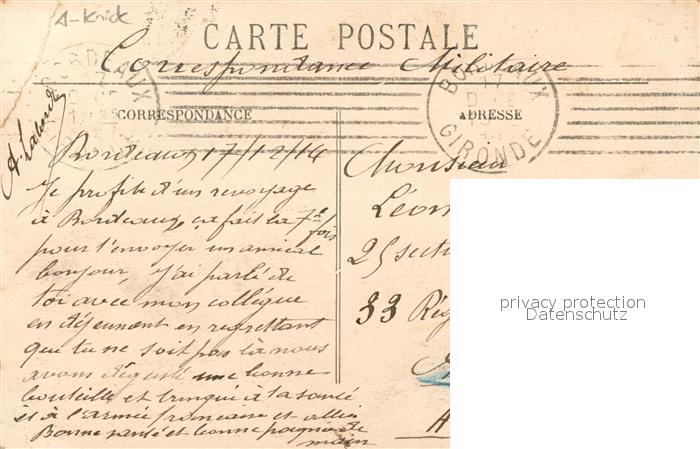 A-Knick
CARTE POSTALE
Correspondance Militaire
CORRESPONDANCE
ADRESSE
BORDEAUX
BORDEAUX
GIRONDE
Bordeaux, 17/12/14
Je profite d'un revoyage
à Bordeaux, ça fait la 7e fois
pour t'envoyer un amical
bonjour, j'ai parlé de
toi avec mon collègue
en déjeunant en regrettant
que tu ne soit pas là nous
avons dégusté une bonne
bouteille et trinqué à ta santé
et à l'armée française et alliés
Bonne santé et bonne poignée de
main
Monsieur
Léon
25 secti
33 Rég
privacy protection
Datenschutz